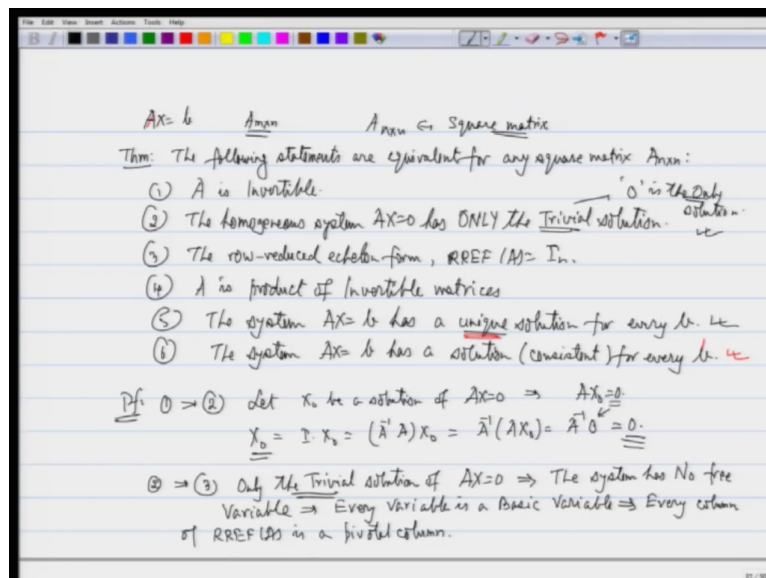 File Edit View Insert Actions Tools Help
B I
AX = b A m×n A n×n ↔ Square matrix
Thm: The following statements are equivalent for any square matrix A n×n:
① A is Invertible.
'0' is the Only solution.
② The homogeneous system AX=0 has ONLY the Trivial solution.
③ The row-reduced echelon form, RREF (A) = Iₙ.
④ A is product of Invertible matrices
⑤ The system AX = b has a unique solution for every b. ↵
⑥ The system AX = b has a solution (consistent) for every b. ↵
Pf: ① → ② Let X₀ be a solution of AX=0 ⇒ AX₀ = 0.
X₀ = I. X₀ = (A⁻¹ A) X₀ = A⁻¹ (AX₀) = A⁻¹ 0 = 0.
② → ③ Only the Trivial solution of AX=0 ⇒ The system has No free
Variable ⇒ Every Variable is a Basic Variable ⇒ Every column
of RREF (A) is a pivotal column.